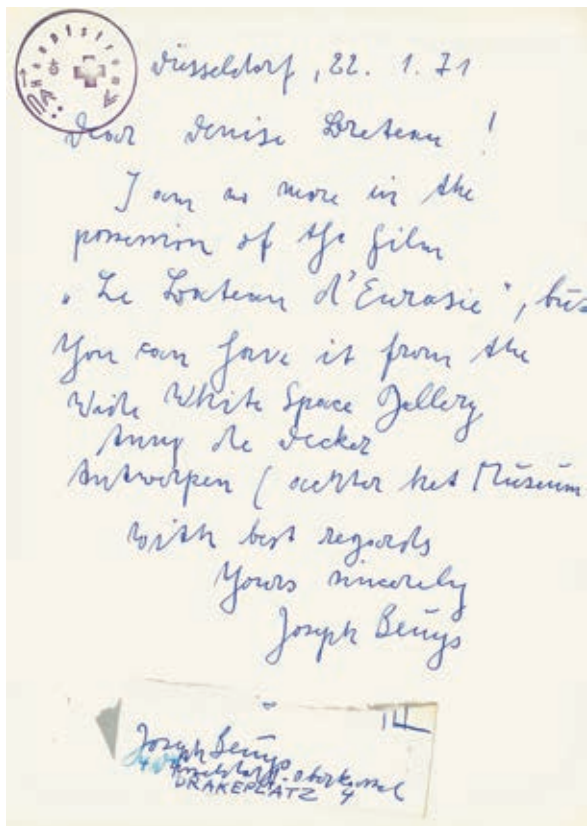 Hauptstrom
Düsseldorf, 22. 1. 71
Dear Denise Breteau !
I am no more in the
possession of the film
„Le Bateau d'Eurasie", but
You can have it from the
Wide White Space Gallery
Anny de Decker
Antwerpen ( achter het Museum
With best regards
Yours sincerely
Joseph Beuys
Joseph Beuys
Düsseldorf-Oberkassel
DRAKEPLATZ 4